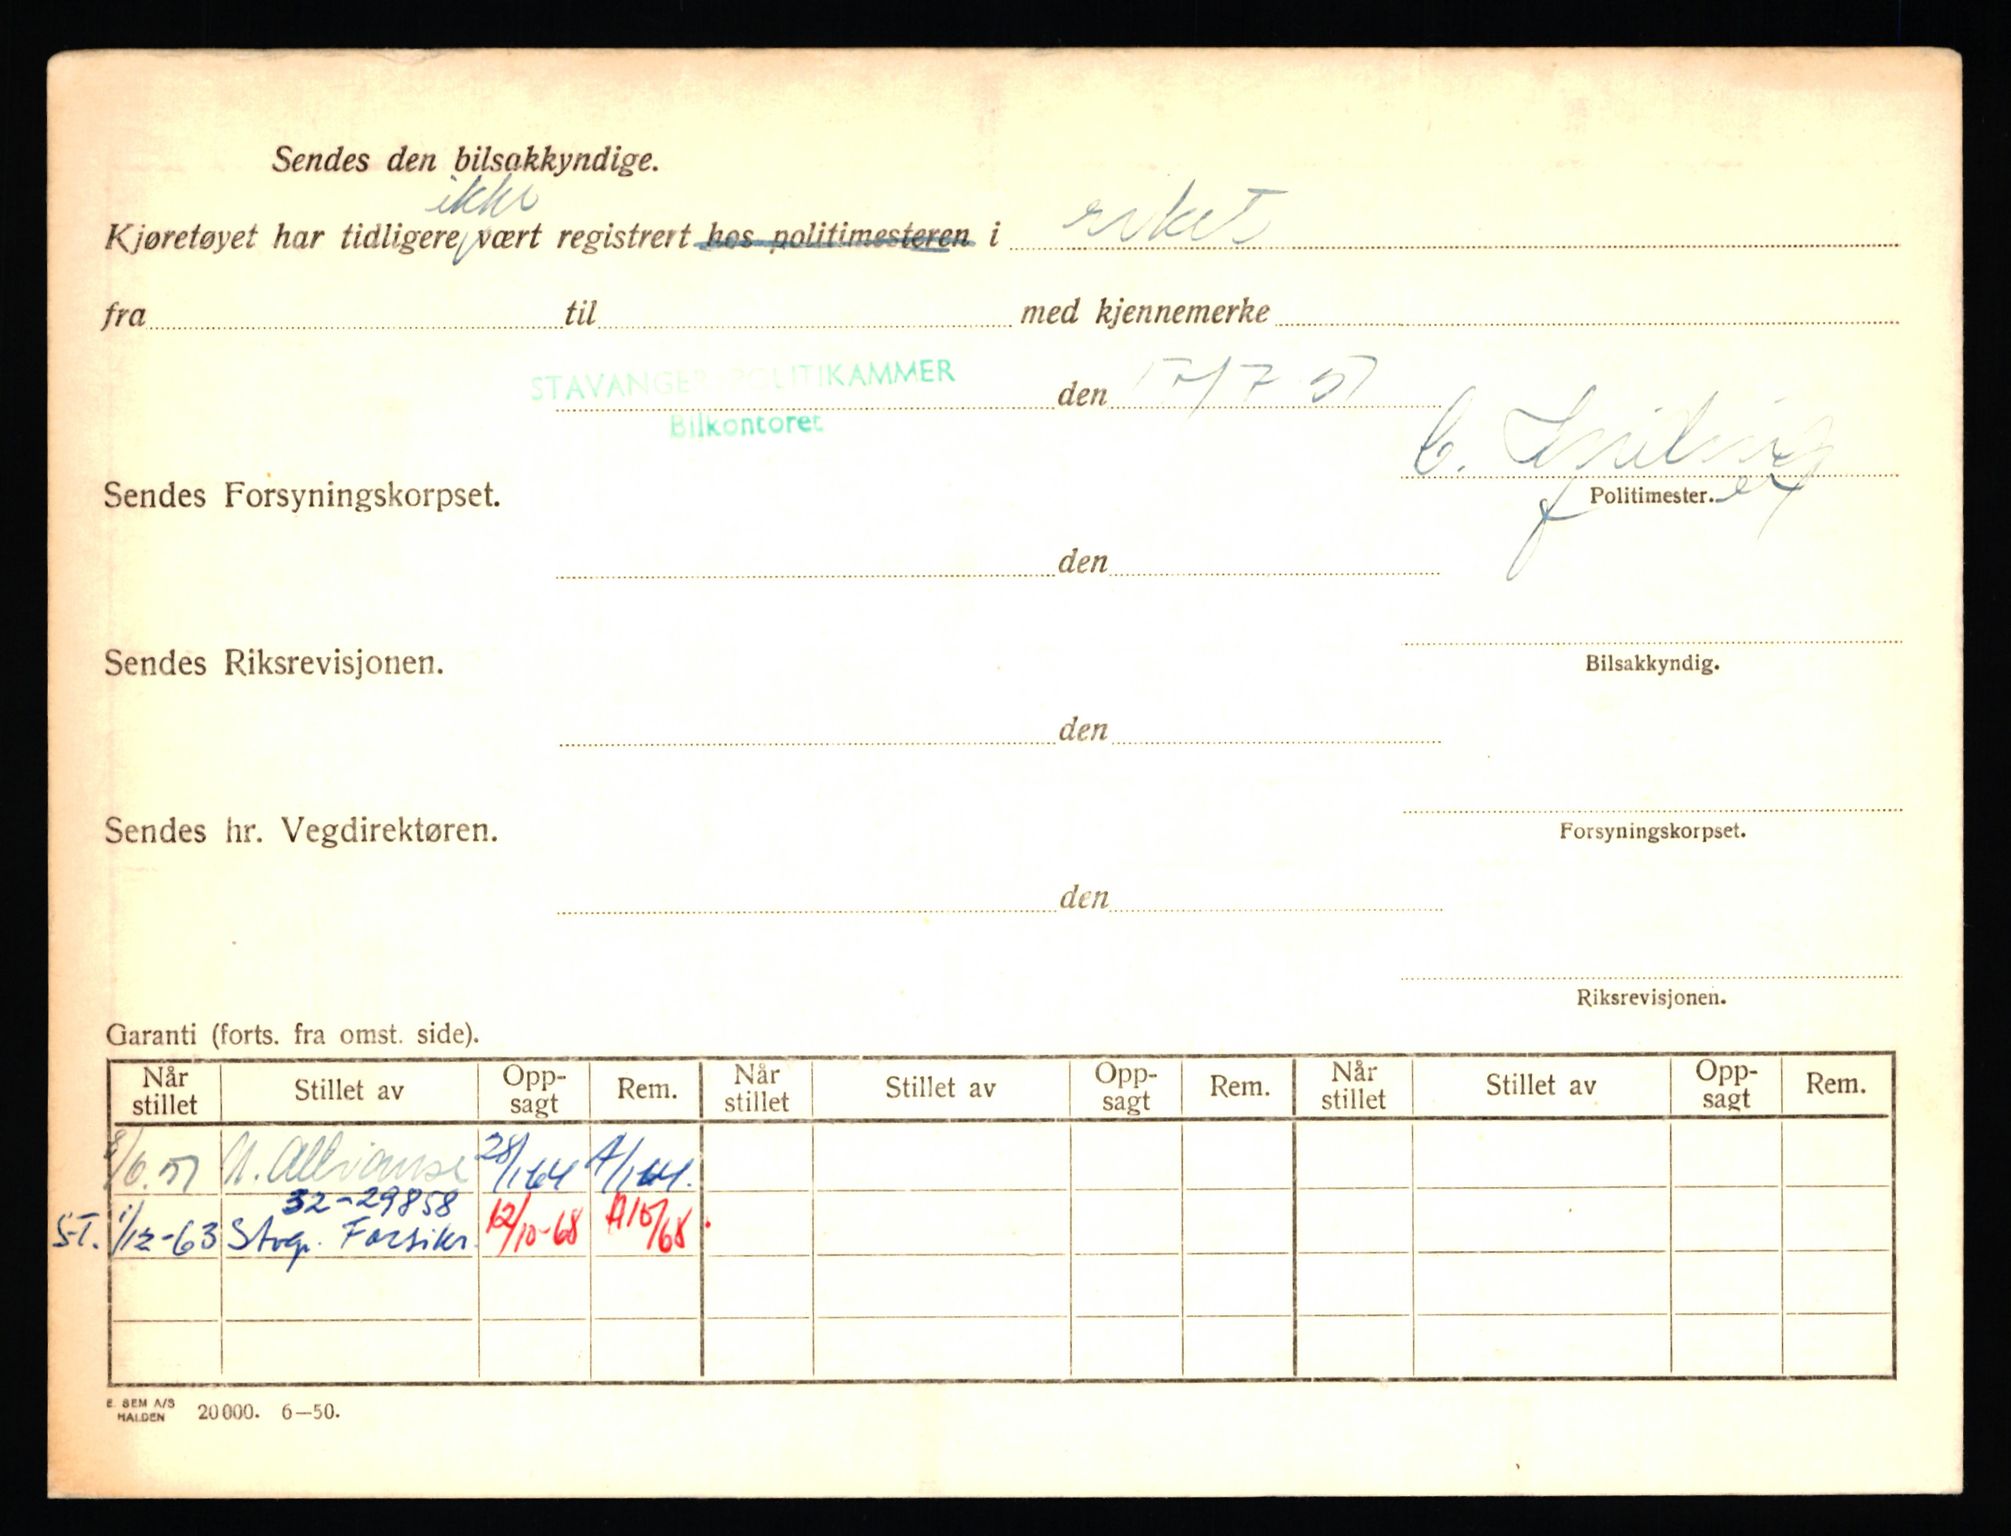 Sendes den bilsakkyndige.
ikke
Kjøretøyet har tidligere vært registrert hos politimesteren i riket
fra til med kjennemerke
STAVANGER POLITIKAMMER den 17/7 51
Bilkontoret
Sendes Forsyningskorpset.
Politimester.
den
Sendes Riksrevisjonen.
Bilsakkyndig.
den
Sendes hr. Vegdirektøren.
Forsyningskorpset.
den
Riksrevisjonen.
Garanti (forts. fra omst. side).
Når stillet Stillet av Opp-sagt Rem. Når stillet Stillet av Opp-sagt Rem. Når stillet Stillet av Opp-sagt Rem.
8/6.51 N. Allianse 28/1 64 A/1 64.
32-29858
ST. 1/12-63 Stvgr. Forsikr. 12/10-68 A10/68.
E. SEM A/S
HALDEN 20000. 6—50.